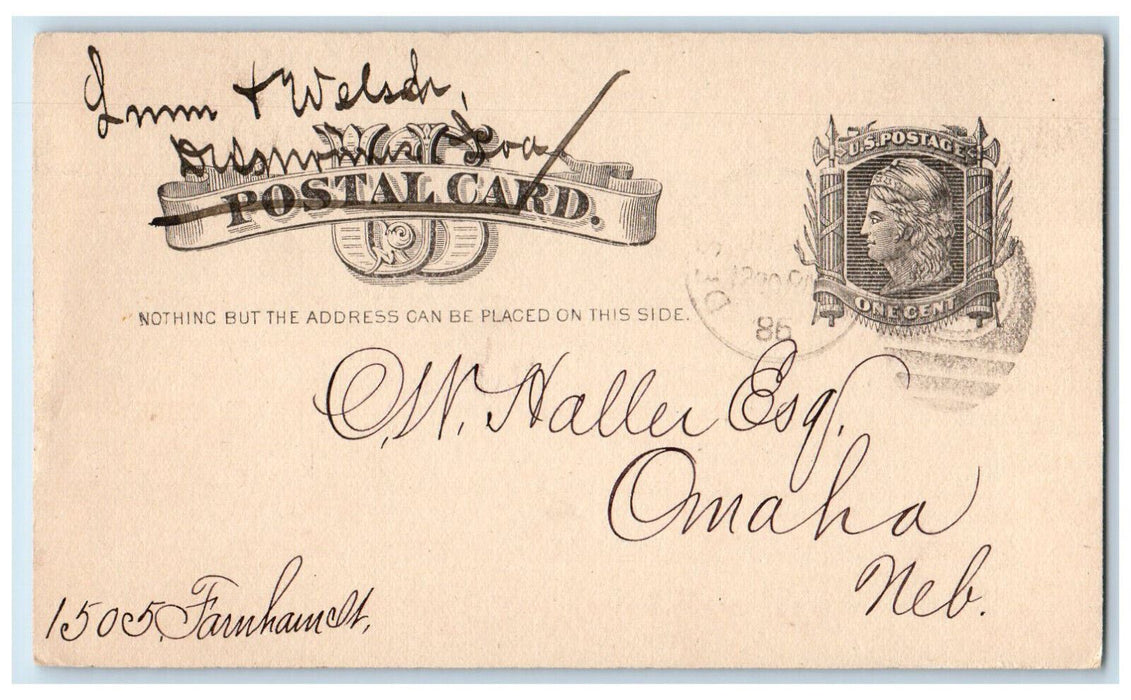 & Welsch,
Desmoines Iowa
U.S. POSTAGE
POSTAL CARD.
ONE CENT
DES
86
NOTHING BUT THE ADDRESS CAN BE PLACED ON THIS SIDE.
C.W. Haller Esq.
Omaha
Neb.
1505 Farnham St.